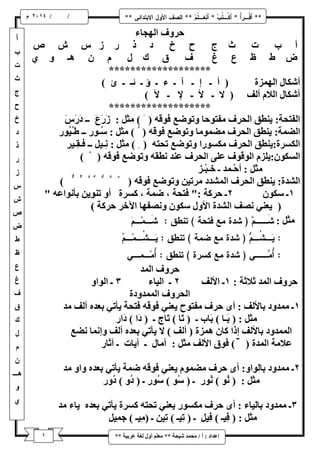 ** أقْــرأ * أكْـتُـبُ * أتَـعَـلَّـمُ ** الصف الأول الابتدائى ** / / ٢٠١٤ م
حروف الهجاء
أ ب ت ث ج ح خ د ذ ر ز س ش ص
ض ط ظ ع غ ف ق ك ل م ن هـ و ي
*********************
أشكال الهمزة ( أ - إ - آ - ء - ؤ - ئـ - ئ )
أشكال اللام ألف ( لا - لأ - لإ - لآ )
*********************
الفتحة: ينطق الحرف مفتوحا وتوضع فوقه ( َ ) مثل : زَرَعَ - دَرَسَ
الضمة: ينطق الحرف مضموما وتوضع فوقه ( ُ ) مثل : سُـور - طُـيُور
الكسرة:ينطق الحرف مكسورا وتوضع تحته ( ِ ) مثل : نـِيل - فَـقـِير
السكون:يلزم الوقوف على الحرف عند نطقه وتوضع فوقه ( ْ )
مثل : أحْـمد - خـُبْـز
الشدة: ينطق الحرف المشدد مرتين وتوضع فوقه ( ّ )
١- سكون ٢- حركة :" فتحة ، ضمة ، كسرة أو تنوين بأنواعه "
( يعني نصف الشدة الأول سكون ونصفها الآخر حركة )
مثل : شَـــمَّ ( شدة مع فتحة ) تنطق : شَـــمْــمَ
: يَـــشُـــمُّ ( شدة مع ضمة ) تنطق : يَـــشُـــمْـــمُ
: أُمِّـــــي ( شدة مع كسرة ) تنطق : أُمْـــمِـــي
حروف المد
حروف المد ثلاثة : ١- الألف ٢- الياء ٣- الواو
الحروف الممدودة
١- ممدود بالألف : أى حرف مفتوح يعني فوقه فتحة يأتي بعده ألف مد
مثل : ( بَـا ) بَاب - ( تَا ) تَاج - ( دَا ) دَار
الممدود بالألف إذا كان همزة ( ألف ) لا يأتي بعده ألف وإنما نضع
علامة المدة ( ~ ) فوق الألف مثل : آمال - آيات - آثار
٢- ممدود بالواو: أى حرف مضموم يعني فوقه ضمة يأتي بعده واو مد
مثل : ( نُو ) نُور - ( سُو ) سُور - ( دُو ) دُور
٣- ممدود بالياء : أى حرف مكسور يعني تحته كسرة يأتي بعده ياء مد
مثل : ( فِيـ ) فِيل - ( تِيـ ) تِين - (مِيـ ) جميل
أ
ب
ت
ث
ج
ح
خ
د
ذ
ر
ز
س
ش
ص
ض
ط
ظ
ع
غ
ف
ق
ك
ل
م
ن
هـ
و
ي
إعداد : أ / محمد شيحة ** معلم أول لغة عربية **
١